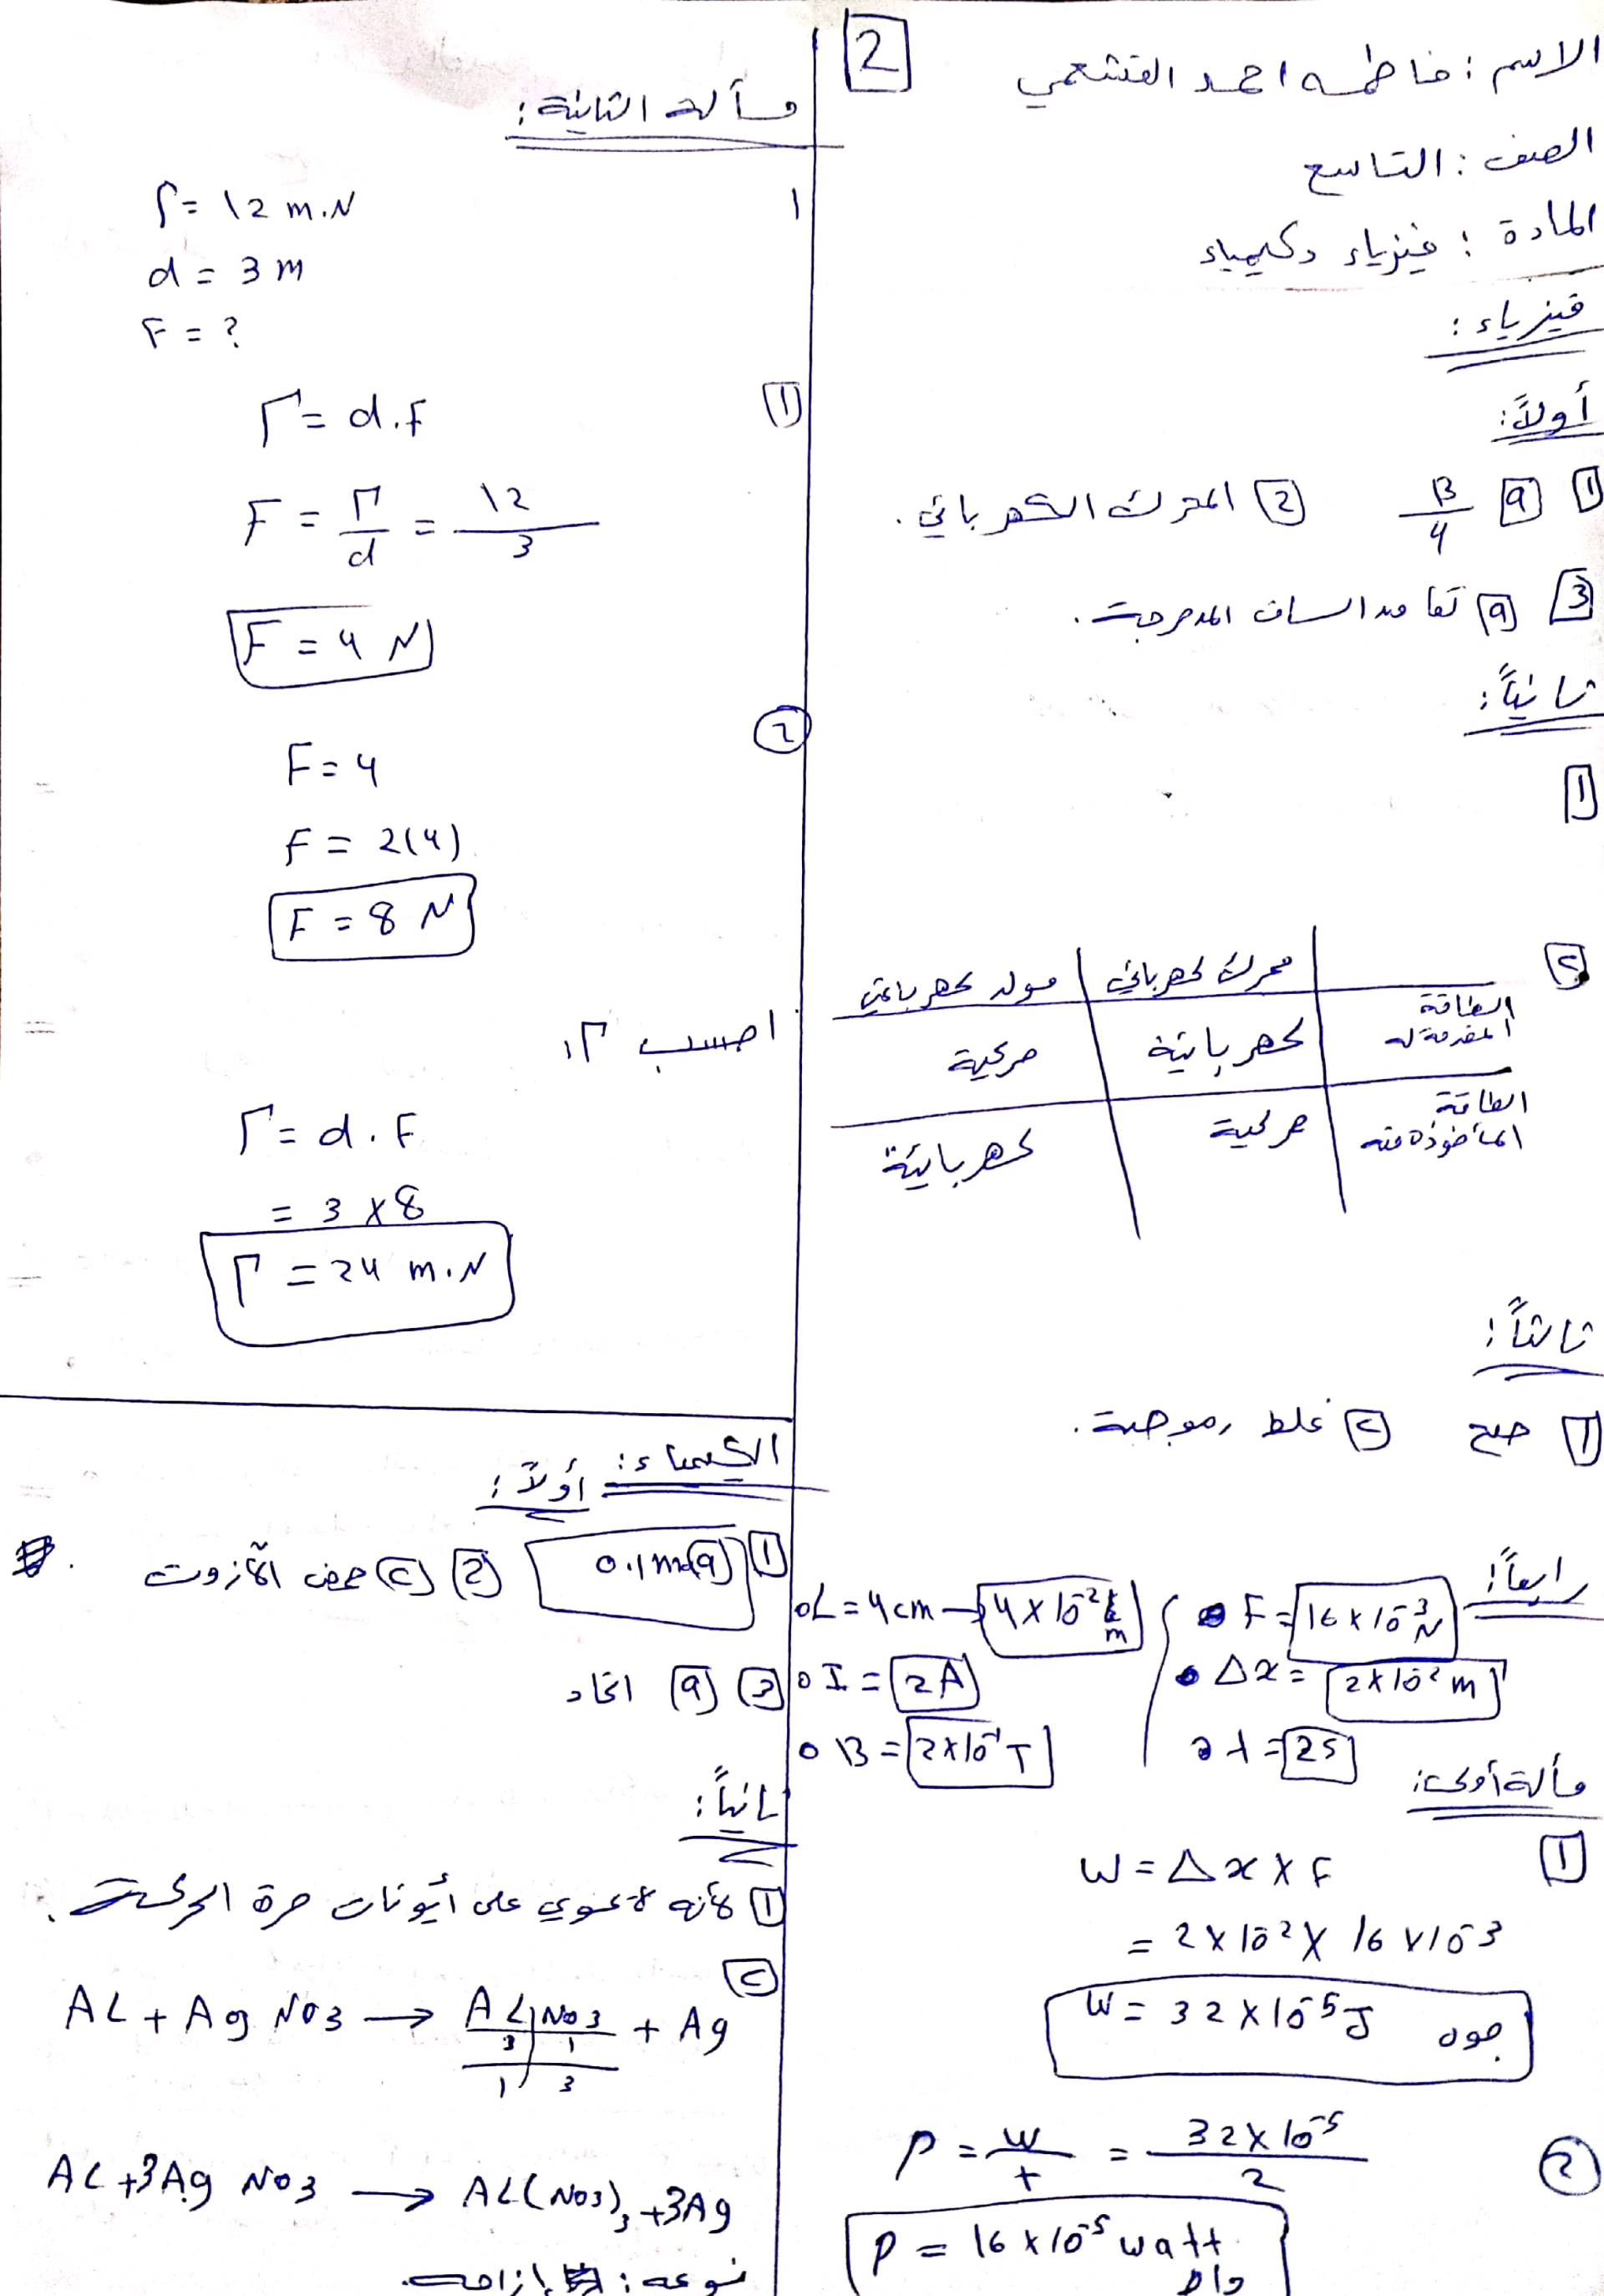 2
الاسم : فاطمه احمد القشعمي
الصف : التاسع
المادة : فيزياء وكيمياء
فيزياء :
أولاً :
1 a B/4 2 المحرك الكهربائي .
3 a تقا الساق المدحرجة .
ثانياً :
1
2
محرك كهربائي | مولد كهربائي
الطاقة المقدمة له | كهربائية | حركية
الطاقة المأخوذة منه | حركية | كهربائية
ثالثاً :
1 صح 2 غلط , موجبة .
رابعاً :
F = 16 x 10^-3 N
Δx = 2 x 10^-2 m
t = 2s
L = 4 cm → 4 x 10^-2 m
I = 2A
B = 2 x 10^-1 T
مسألة أولى :
1
W = Δx x F
= 2 x 10^-2 x 16 x 10^-3
W = 32 x 10^-5 J جول
2
P = W/t = 32 x 10^-5 / 2
P = 16 x 10^-5 watt
واط
مسألة الثانية :
1
Γ = 12 m.N
d = 3 m
F = ?
1
Γ = d.F
F = Γ/d = 12/3
F = 4 N
2
F = 4
F = 2(4)
F = 8 N
احسب Γ
Γ = d.F
= 3 x 8
Γ = 24 m.N
الكيمياء : أولاً :
1 a 0.1 2 c حمض الآزوت .
3 a اتحاد
ثانياً :
1 لأنه لا يحوي على أيونات حرة الحركة .
2
AL + Ag NO3 → AL NO3 + Ag
3 1
1 3
AL + 3Ag NO3 → AL(NO3)3 + 3Ag
نوعه : إزاحة .